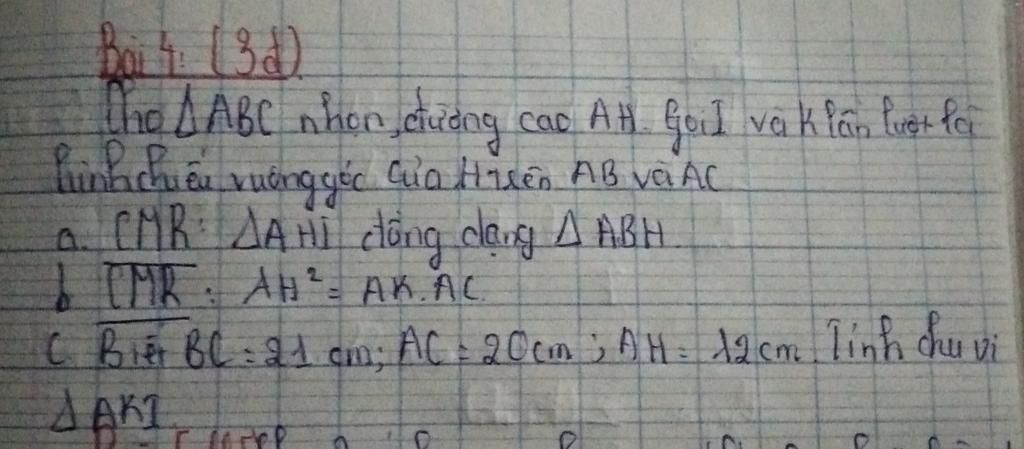 Bài 4: (3đ)
Cho ΔABC nhọn, đường cao AH. Gọi I và K lần lượt là
hình chiếu vuông góc của H trên AB và AC
a. CMR: ΔAHI đồng dạng Δ ABH
b CMR: AH² = AK.AC.
C. Biết BC = 21 cm; AC = 20cm; AH = 12cm. Tính chu vi
Δ AKI